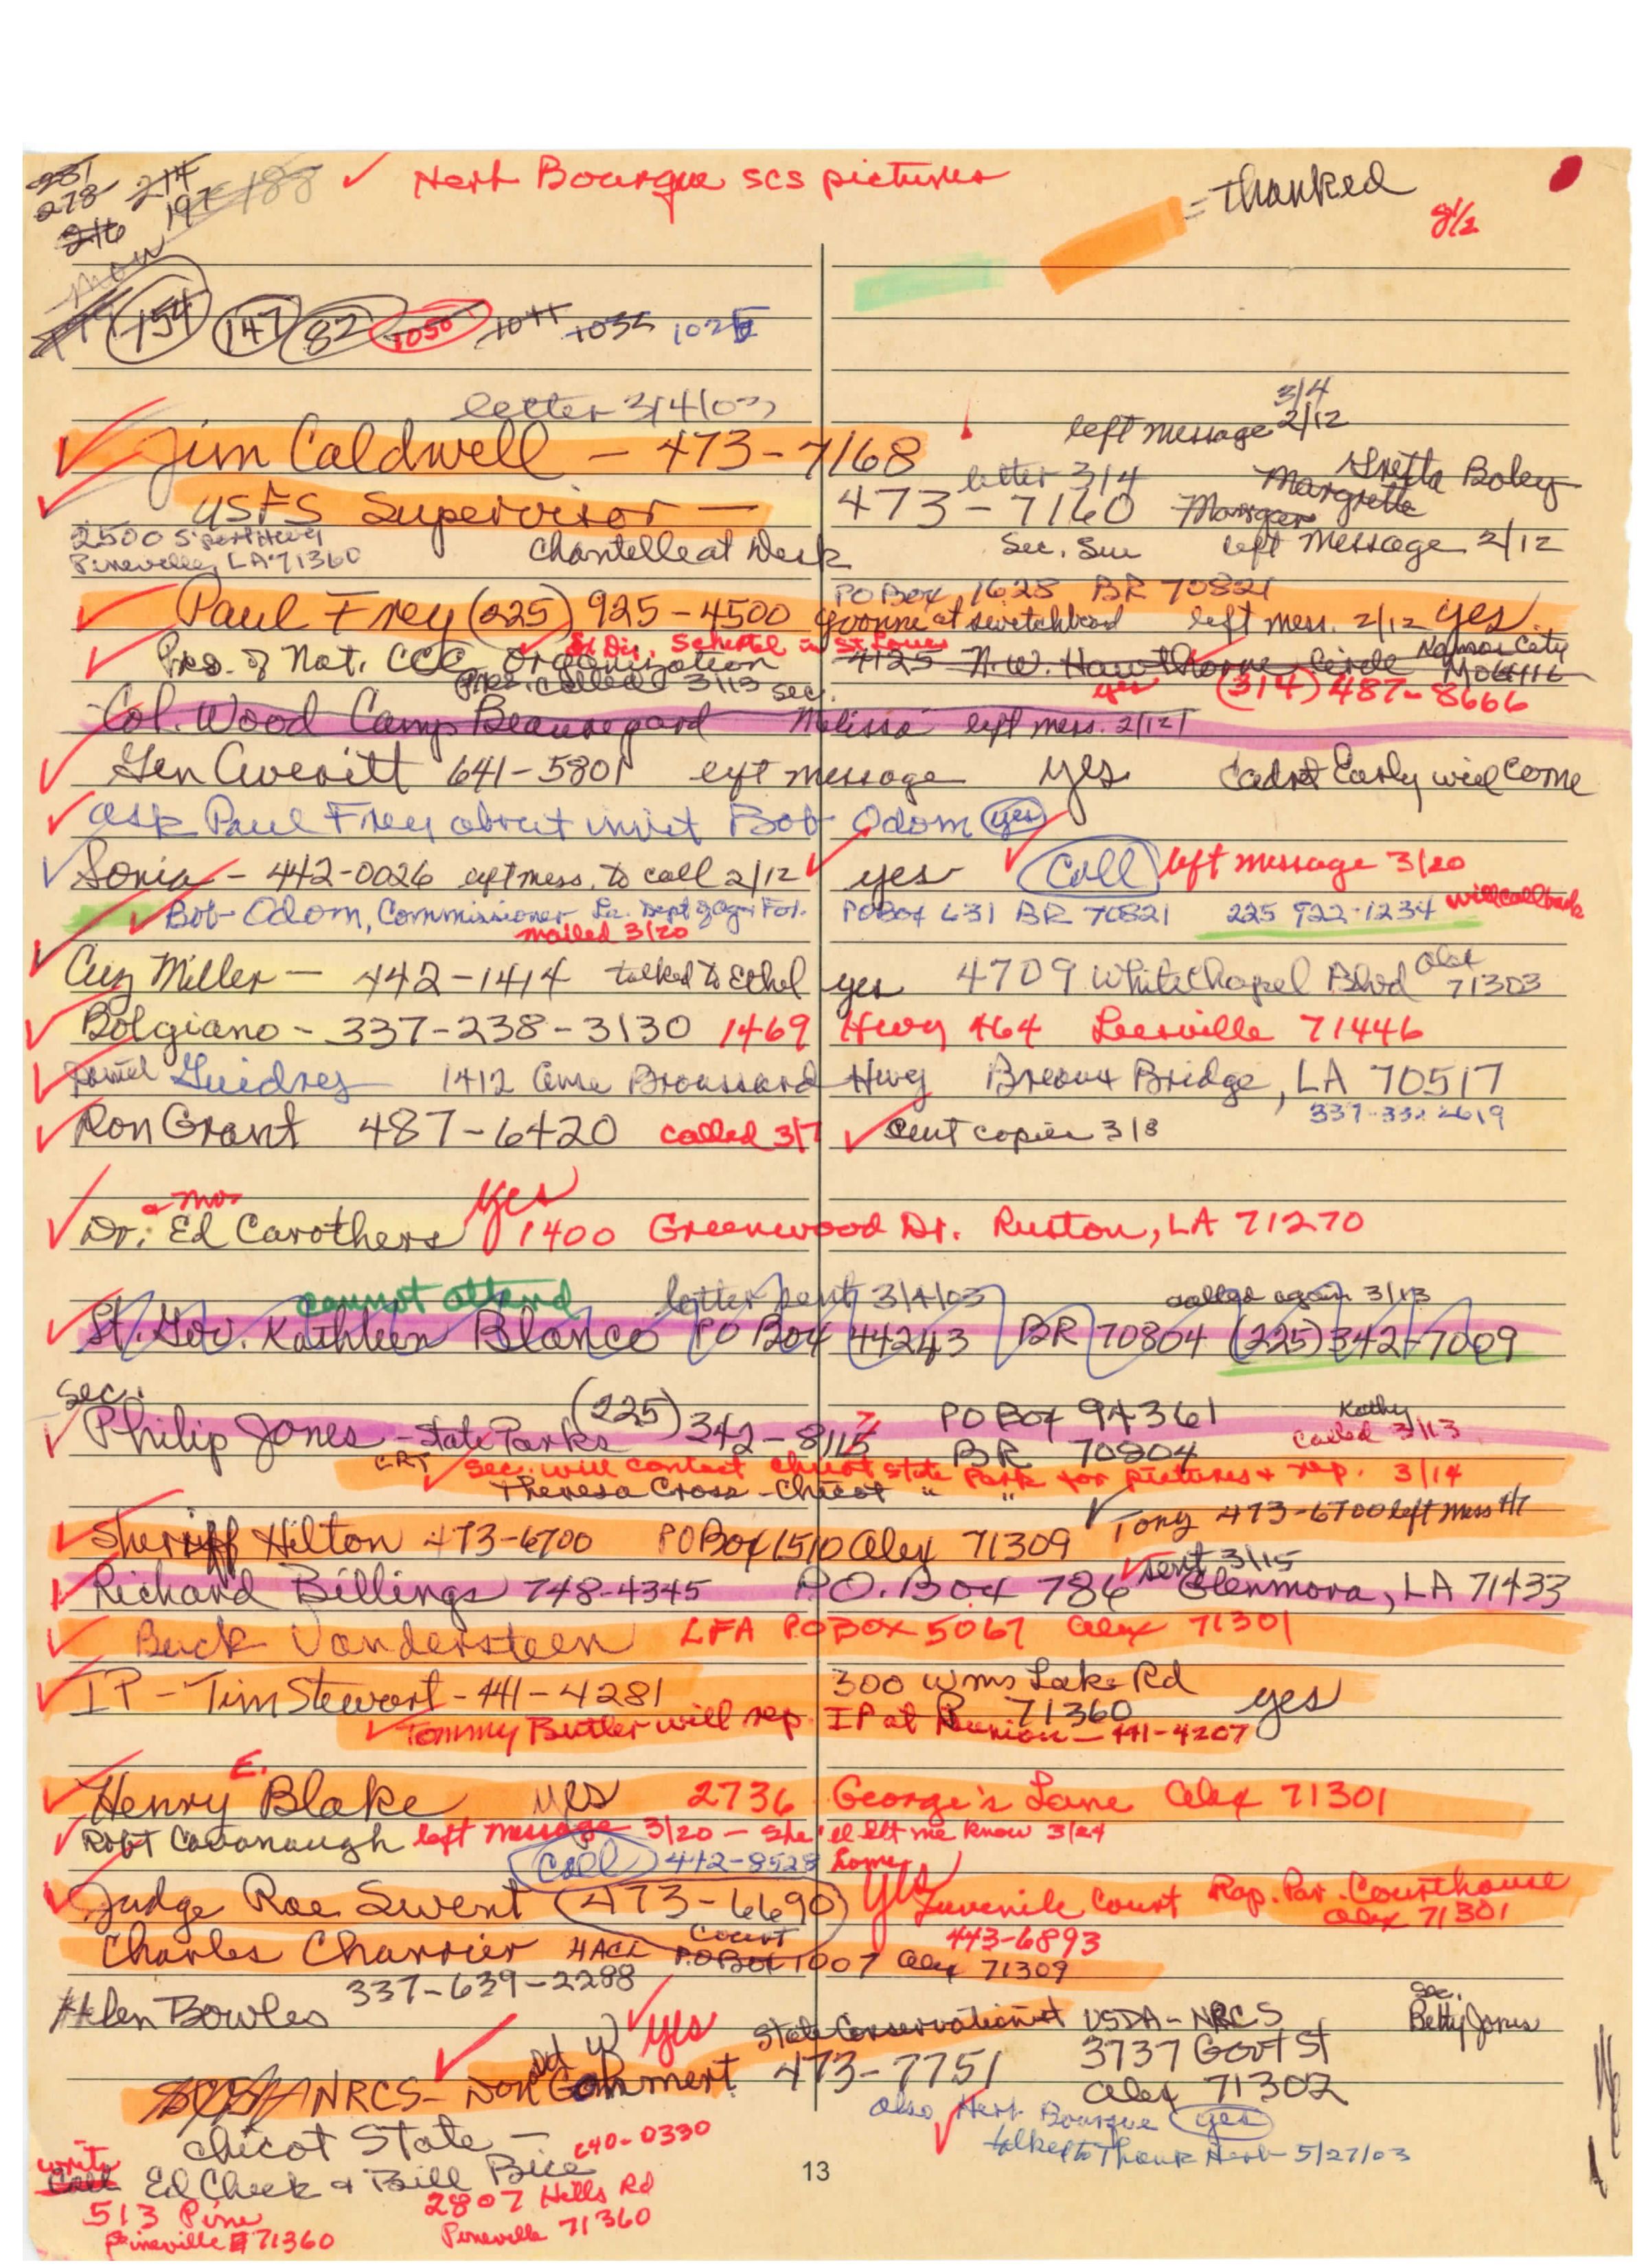 Herb Bourque SCS pictures
= thanked
8 1/2
231
278 214
216 197 188
now
154 147 82 1050 1044 1035 1025
letter 3/4/03
3/4
left message 2/12
Jim Caldwell - 473-7168
letter 3/4
Gretta Boley
Margrette
USFS Supervisor - 473-7160
2500 Shreveport Hwy
Pineville, LA 71360
Chantelle at Desk
Sec. Sue left message 2/12
PO Box 1628 BR 70821
Paul Frey (225) 925-4500 Yvonne at switchboard left mess. 2/12 yes
Pres. of Nat. CCC Organization 4125 N.W. Hawthorne Circle Kansas City
in St. Louis
called 3/13 sec.
yes (314) 487-8666
Col. Wood Camp Beauregard Melissa left mess. 2/12
Gen Averitt 641-5801 left message yes Cadet Early will come
ask Paul Frey about invit Bob Odom yes
Sonia - 442-0026 left mess. to call 2/12 yes Call left message 3/20
will call back
Bob Odom, Commissioner La. Dept of Agr. For. PO Box 631 BR 70821 225 922-1234
mailed 3/20
Cuz Miller - 442-1414 talked to Ethel yes 4709 Whitechapel Blvd Alex 71303
Bolgiano - 337-238-3130 1469 Hwy 464 Leesville 71446
Guidrey 1412 Broussard Hwy Breaux Bridge, LA 70517
337-332-2619
Ron Grant 487-6420 called 3/7 sent copies 3/8
yes
Dr. Ed Carothers 1400 Greenwood Dr. Ruston, LA 71270
cannot attend letter sent 3/4/03 called again 3/13
Lt. Gov. Kathleen Blanco PO Box 44243 BR 70804 (225) 342-7009
Sec.
Philip Jones - State Parks (225) 342-8115 PO Box 94361
BR 70804
Kathy
called 3/13
CRT
Sec. will contact Chicot State Park for pictures & rep. 3/14
Theresa Cross - Chicot " "
Sheriff Hilton 473-6700 PO Box 1510 Alex 71309 Tony 473-6700 left mess
sent 3/15
Richard Billings 748-4345 P.O. Box 786 Glenmora, LA 71433
Buck Vandersteen LFA PO BOX 5067 Alex 71301
IP - Tim Stewart - 441-4281 300 Wms Lake Rd
P 71360 yes
Tommy Butler will rep. IP at Reunion - 441-4207
Henry E. Blake yes 2736 George's Lane Alex 71301
Robt Cavanaugh left message 3/20 - she'll let me know 3/24
Call 442-8528 home
Judge Rae Swent (473-6690) yes Juvenile Court Rap. Par. Courthouse
Alex 71301
Court
443-6893
Charles Charrier PO Box 1007 Alex 71309
Helen Bowles 337-639-2288
yes
State Conservationist USDA - NRCS
Sec.
Betty Jones
NRCS - Don Gohmert 473-7751 3737 Govt St
Alex 71302
also Herb Bourque yes
talked to Thank Herb 5/27/03
Chicot State -
write
Call Ed Cheek & Bill Bice 640-0330
513 Pine
Pineville 71360
2807 Hills Rd
Pineville 71360
13